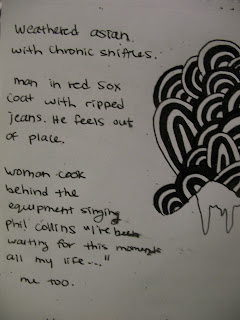 weathered asian.
with chronic sniffles.
man in red sox
coat with ripped
jeans. He feels out
of place.
woman cook
behind the
equipment singing
phil collins "I've been
waiting for this moment
all my life..."
me too.